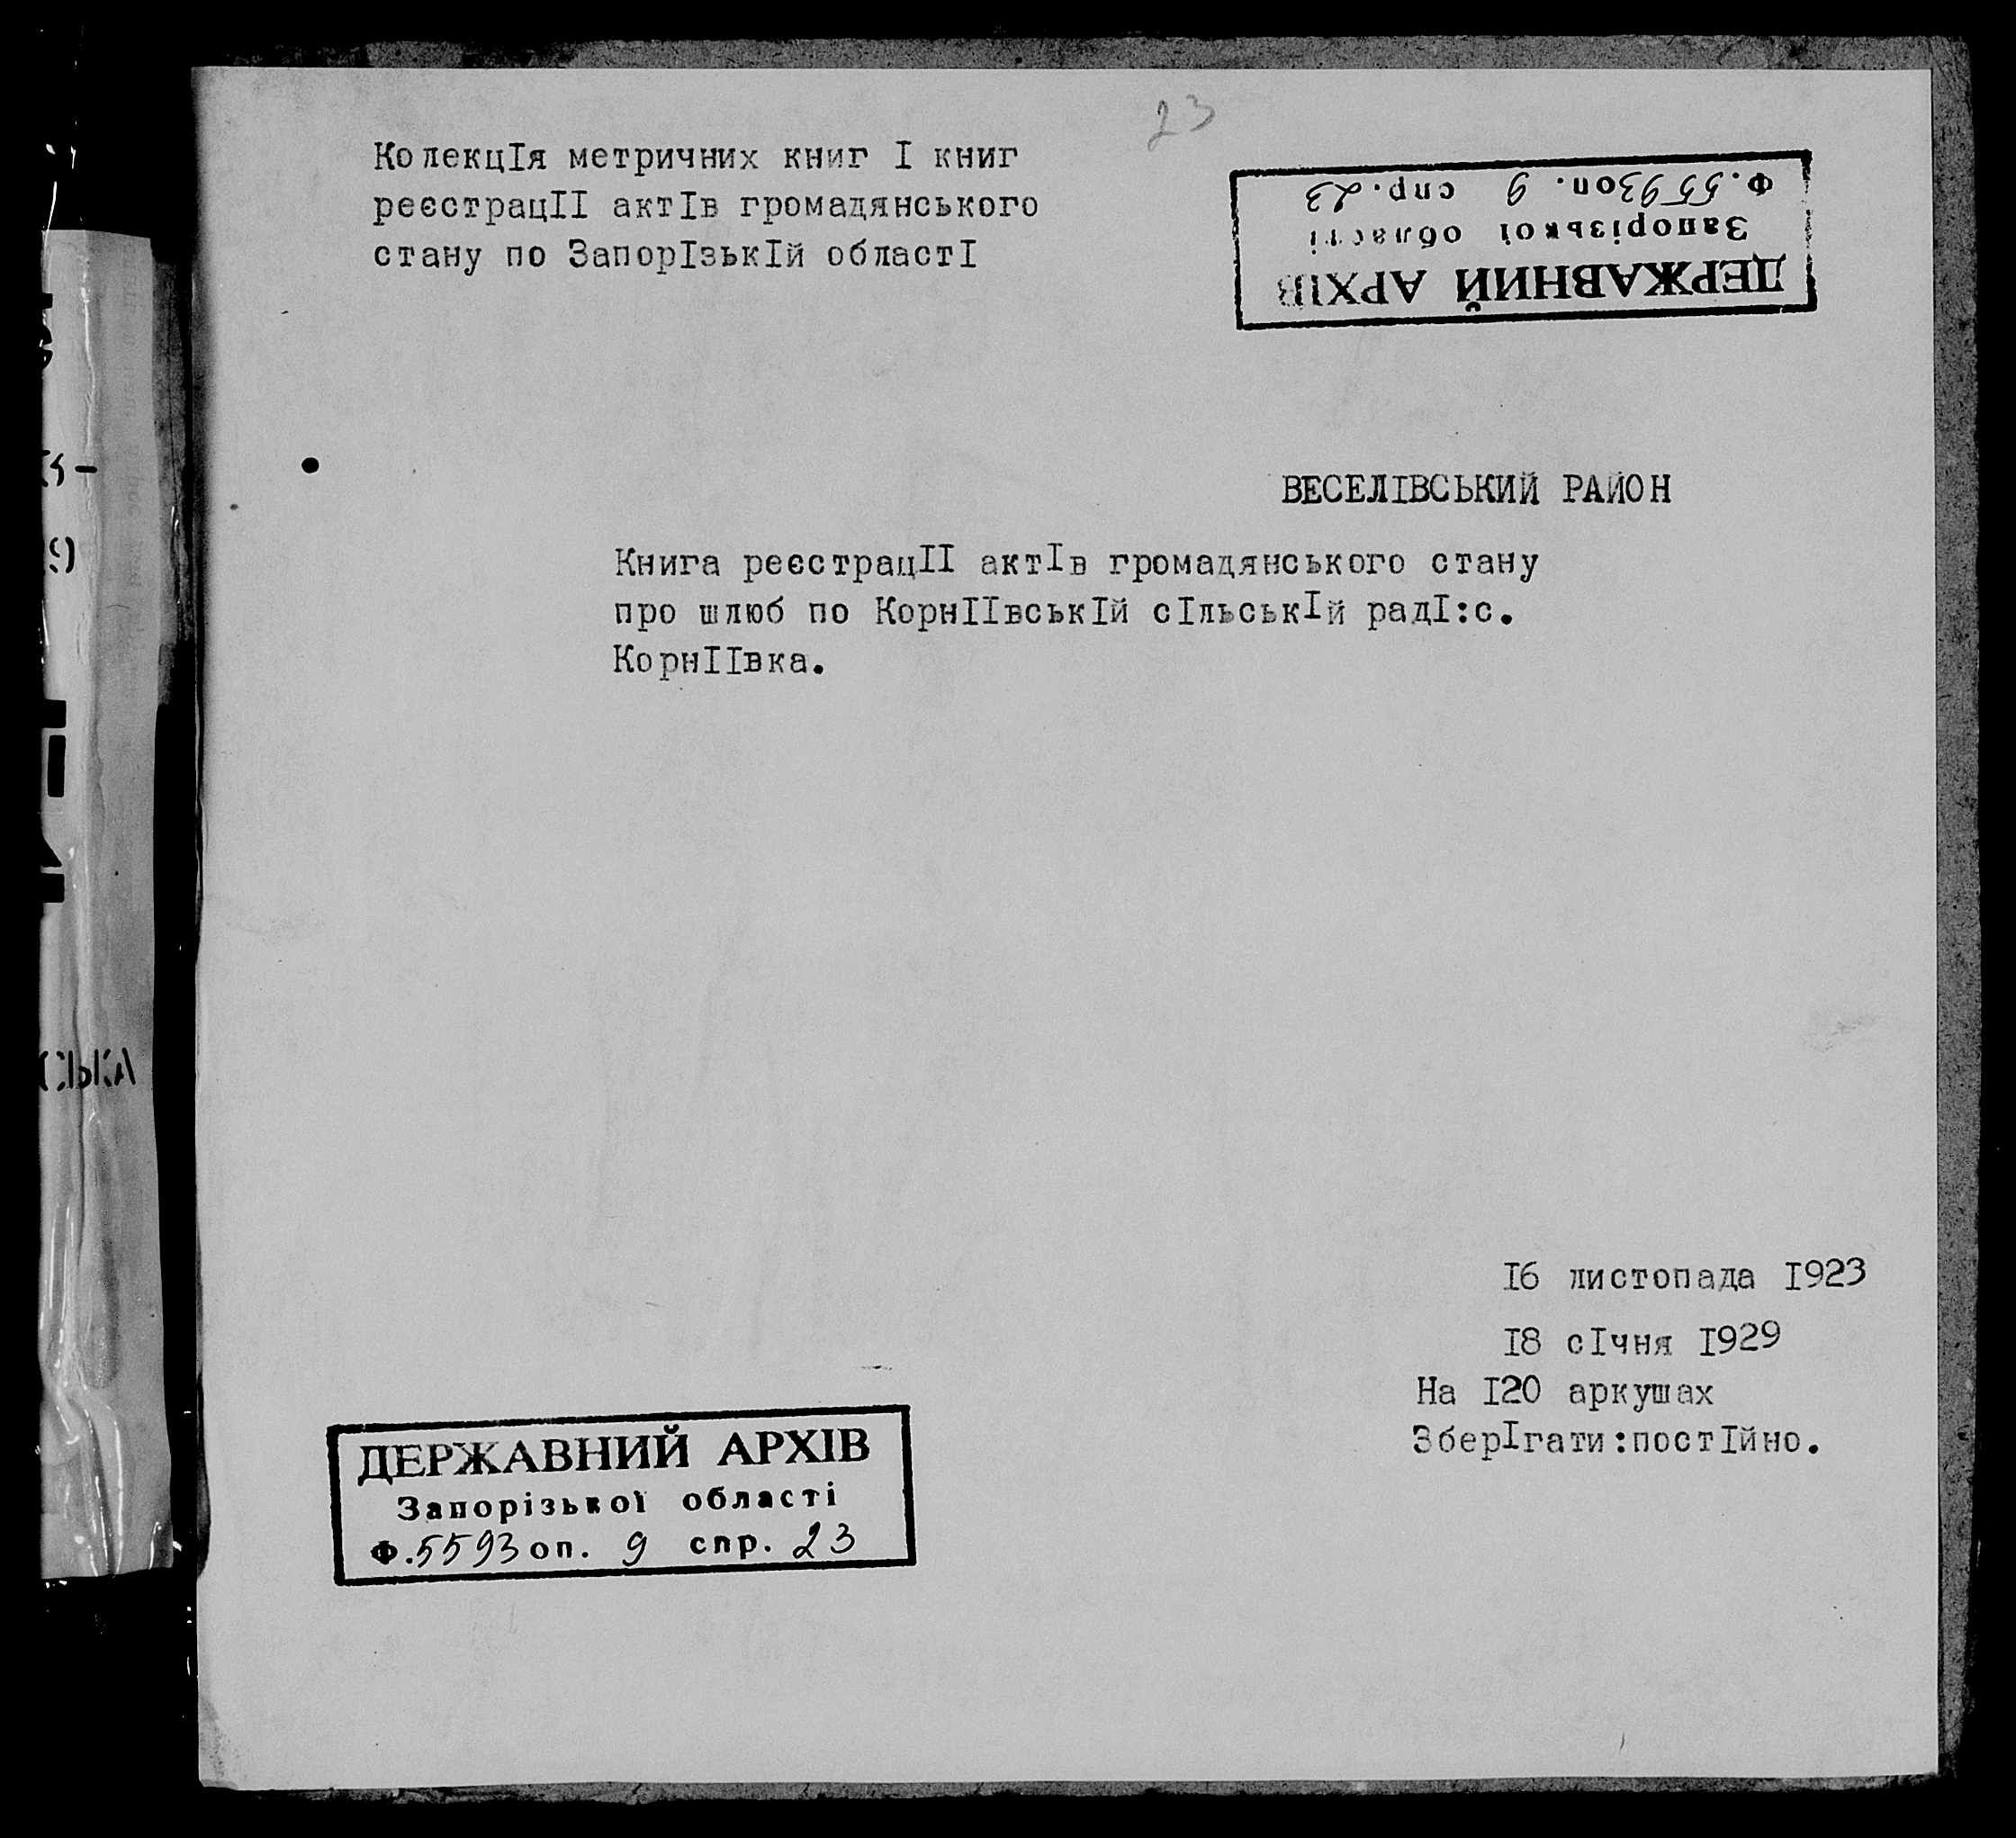 23
КолекцІя метричних книг І книг
реєстрацІІ актІв громадянського
стану по ЗапорІзькІй областІ
ДЕРЖАВНИЙ АРХІВ
Запорізької області
Ф.5593 оп. 9 спр. 23
ВЕСЕЛІВСЬКИЙ РАЙОН
Книга реєстрацІІ актІв громадянського стану
про шлюб по КорнІІвськІй сІльськІй радІ:с.
КорнІІвка.
І6 листопада І923
І8 сІчня І929
На І20 аркушах
ЗберІгати:постІйно.
ДЕРЖАВНИЙ АРХІВ
Запорізької області
Ф.5593 оп. 9 спр. 23